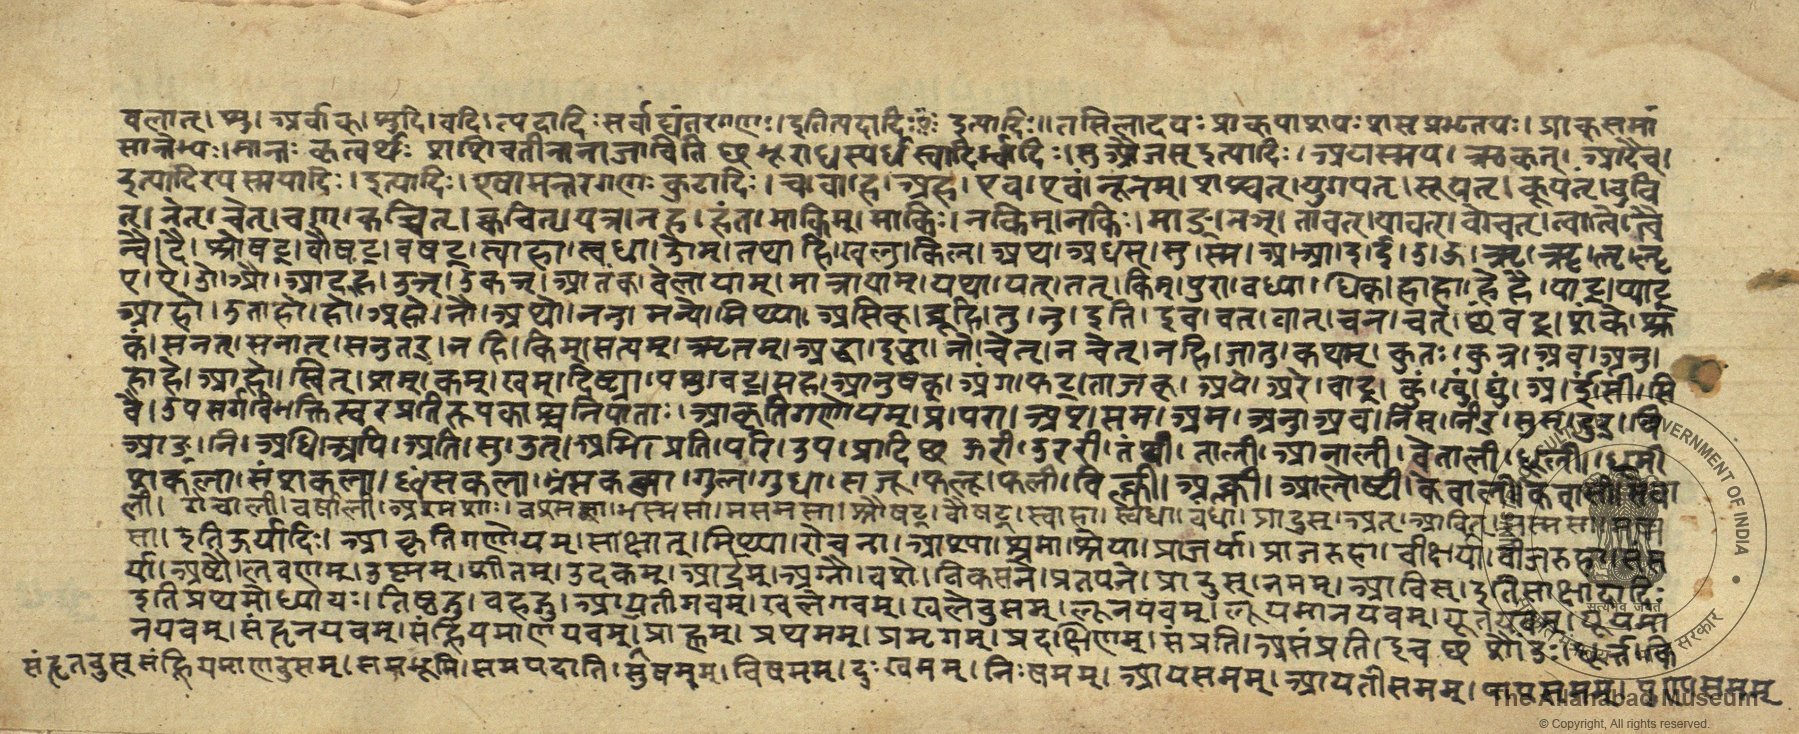 वलात्। प्सु। अर्वाक्। प्सुदि। वदि। त्यदादिः सर्वाद्यंतरगणः। इतित्यदादिः इत्यादिः॥ तसिलादयः प्राक्पाशपः शसप्रभृतयः। प्राक्समा
सान्तेभ्यः। मान्तः कृत्वर्थः शशिवतीनानाञाविति छ भूराधस्पर्धस्वादिर्भ्वादिः। सुऔजस् इत्यादिः। अटास्मय। ऋकृत्। आदैच्।
इत्यादिपस्मयादिः। इत्यादिः। एषामन्तरगणः कुटादिः। च। वा। ह। अह। एव। एवं। नूनम्। शश्वत्। युगपत्। सूपत्। कूपत्। कुवि
त्। नेत्। चेत्। चण्। कच्चित्। क्वचित्। यत्र। नह। हंत। माकिम्। माकिः। नकिम्। नकिः। माङ्। नञ्। तावत्। यावत्। वोचत्। त्वा। त्वै। त्वै
न्वै। द्वै। श्रौषट्। वौषट्। वषट्। स्वाहा। स्वधा। ओम्। तथा। हि। खलु। किल। अथ। अधस्। सु। स्म। अ। आ। इ। ई। उ। ऊ। ऋ। ॠ। लृ। ॡ
ए। ऐ। ओ। औ। आदह। उञ्। उकञ्। आतंक। वेलायाम्। मात्रायाम्। यथा। यत्। तत्। किम्। पुरा। वध्वा। धिक्। हाहा। हे। है। पाट्। प्याट्
आहो। उताहो। हो। अहो। नो। अथो। ननु। मन्ये। मिथ्या। असि। ब्रूहि। तु। नु। इति। इव। वत्। वात्। चन। चत। छंवट्। शं। कं। श्र
कं। सनत्। सनात्। सनुतर्। नहि। किम्। सत्यम्। ऋतम्। अद्धा। इद्धा। नोचेत्। नचेत्। नहि। जातु। कथम्। कुतः। कुत्र। अव। अनु।
हाहे। आहो। स्वित्। शम्। कम्। खम्। दिष्ट्या। पशु। वट्। सह। आनुषक्। अंग। फट्। ताजक्। अये। अरे। वाट्। कुं। खुं। घुं। अं। ईं। सीं। सि
वै। उपसर्गविभक्तिस्वरप्रतिरूपकाश्चनिपाताः। आकृतिगणोयम्। प्र। परा। अप। सम्। अम। अनु। अव। निस्। निर्। सुस्। दुर्। वि
आङ्। नि। अधि। अपि। अति। सु। उत्। अभि। प्रति। परि। उप। प्रादि छ ऊरी। उररी। तंथी। ताली। आताली। वेताली। धूली। धूसी
शकला। संशकला। ध्वंसकला। भ्रंसकला। गुलु। गुधा। सजू। फलू। फली। विक्ली। अक्ली। आलोष्टी। केवाली। केवासी। सेवा
ली। गेवाली। वर्षाली। अश्मशाः। वश्मसा। भस्मसा। मसमसा। श्रौषट्। वौषट्। स्वाहा। स्वधा। वधा। प्रादुस्। श्रत्। आवित्। सस्मसा। मसम
सा। इति ऊर्यादिः। आकृतिगणोयम्। साक्षात्। मिथ्या। रोचना। आशा। अमा। श्रेया। प्राजर्या। प्राजरुहा। वीक्षर्या। वीजरुहा। संस
र्या। अर्थे। लवणम्। उष्णम्। शीतम्। उदकम्। आर्द्रम्। अग्नौ। वशे। विकसने। प्रतपने। प्रादुस्। नमस्। आविस्। इति साक्षादादिः
इति प्रथमोध्यायः। तिष्ठद्गु। वहद्गु। आयतीगवम्। खलेगवम्। खलेवुसम्। लूनयवम्। लूयमानयवम्। पूतयवम्। पूयमा
नयवम्। संहृतयवम्। संह्रियमाणयवम्। प्राह्णम्। प्रथमम्। प्रमृगम्। प्रदक्षिणम्। संप्रति। असंप्रति। इच् छ शौंडः। धूर्त्त। कि
संहृतवुस संह्रियमाणवुसम्। समभूमि। समपदाति। सुषमम्। विषमम्। दुःखमम्। निःषमम्। आयसमम्। आयतीसमम्। पापसमम्। पुण्यसमम्
GOVERNMENT OF INDIA
सत्यमेव जयते
The Allahabad Museum
© Copyright, All rights reserved.